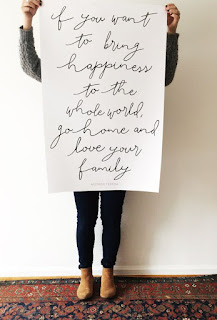 f you want
to bring
happiness
to the
whole world,
go home and
love your
family